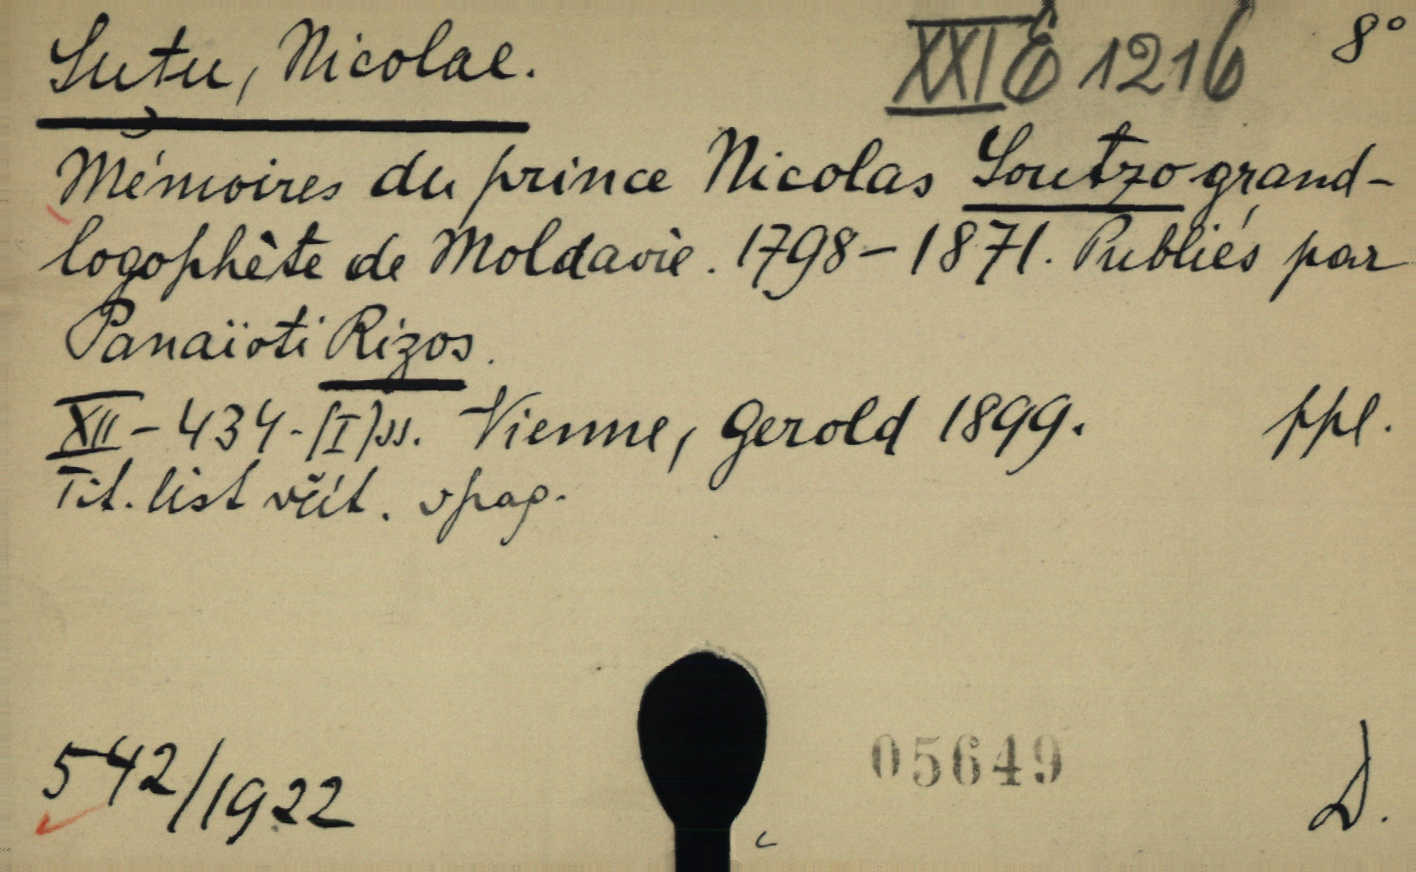 Suțu, Nicolae.
XXI E 1216
8°
Mémoires du prince Nicolas Soutzo grand-
logophète de Moldavie. 1798-1871. Publiés par
Panaïoti Rizos.
XII-434-[I]ss. Vienne, Gerold 1899. ppl.
Tit. list všit.
542/1922
05649
D.